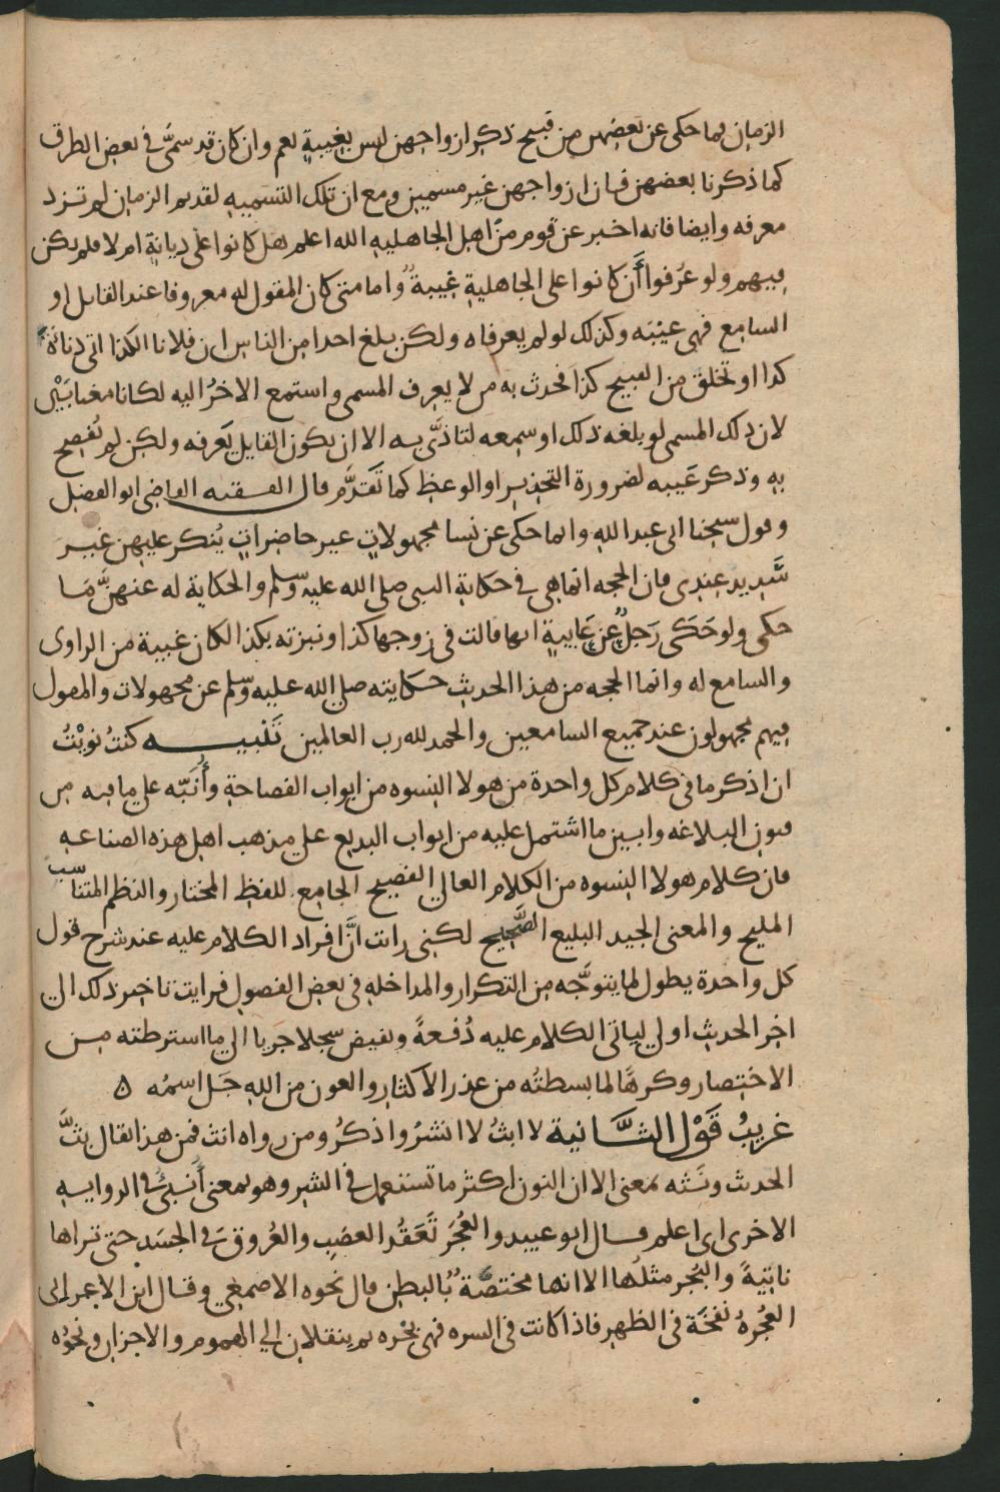 الزمان بما حكى عن بعضهن من قبيح ذكر ازواجهن ليس بغيبة نعم وان كان قد سمى في بعض الطرق
كما ذكرنا بعضهن فان ازواجهن غير مسمين ومع ان تلك التسميه لقديم الزمان لم تزد
معرفه وايضا فانه اخبر عن قوم من اهل الجاهليه الله اعلم هل كانوا على ديانة ام لا فلم يكن
فيهم ولو عرفوا أن كانوا على الجاهلية غيبة واما متى كان المقول له معروفا عند القايل او
السامع فهى غيبه وكذلك لو لم يعرفاه ولكن بلغ احدا من الناس ان فلانا الكذا اتى
كذا او تخلق من القبيح كذا فحدث به من لا يعرف المسمى واستمع الاخر اليه لكانا مغتابين
لان ذلك المسمى لو بلغه ذلك او سمعه لتاذى به الا ان يكون القايل يعرفه ولكن لم يفصح
به وذكر غيبه لضرورة التحذير او الوعظ كما تقدم قال الفقيه القاضي ابو الفضل
وقول شيخنا ابى عبد الله وانما حكى عن نسا مجهولات غير حاضرات ينكر عليهن غير
شديد عندى فان الحجه انما هى في حكاية النبى صلى الله عليه وسلم والحكاية له عنهن ما
حكى ولو حكى رجل عن غايبة انها قالت في زوجها كذا ونبزته بكذا لكان غيبة من الراوى
والسامع له وانما الحجه من هذا الحديث حكايته صلى الله عليه وسلم عن مجهولات والمقول
فيهم مجهولون عند جميع السامعين والحمد لله رب العالمين تنبيه كنت نويت
ان اذكر ما في كلام كل واحدة من هولا النسوه من ابواب الفصاحة وأنبه على ما فيه من
فنون البلاغه وابين ما اشتمل عليه من ابواب البديع على مذهب اهل هذه الصناعه
فان كلام هولا النسوه من الكلام العالي الفصيح الجامع للفظ المختار والنظم المتناسب
المليح والمعنى الجيد البليغ الصحيح لكنى رايت أن افراد الكلام عليه عند شرح قول
كل واحدة يطول لما يتوجه من التكرار والمداخله في بعض الفصول فرايت تاخير ذلك الى
اخر الحديث اولى لياتى الكلام عليه دفعة ونفيض سجلا جريا الى ما اشترطته من
الاختصار وكرها لما بسطته من عذر الاكثار والعون من الله جل اسمه ه
غريب قول الثانية لا ابث لا انشر واذكر ومن رواه انث فمن هذا يقال بث
الحدث ونثه بمعنى الا ان النون اكثر ما تستعمل في الشر وهو بمعنى أنبئ في الروايه
الاخرى اى اعلم قال ابو عبيد والعجر تعقد العصب والعروق في الجسد حتى تراها
ناتية والبجر مثلها الا انها مختصة بالبطن قال نحوه الاصمعي وقال ابن الاعرابي
العجرة نفخة في الظهر فاذا كانت في السره فهى بجره ثم ينقلان الى الهموم والاحزان ونحوه